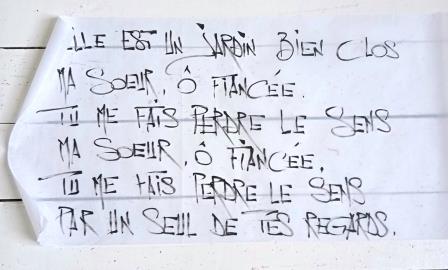 ELLE EST UN JARDIN BIEN CLOS
MA SOEUR, Ô FIANCÉE.
TU ME FAIS PERDRE LE SENS
MA SOEUR, Ô FIANCÉE,
TU ME FAIS PERDRE LE SENS
PAR UN SEUL DE TES REGARDS.